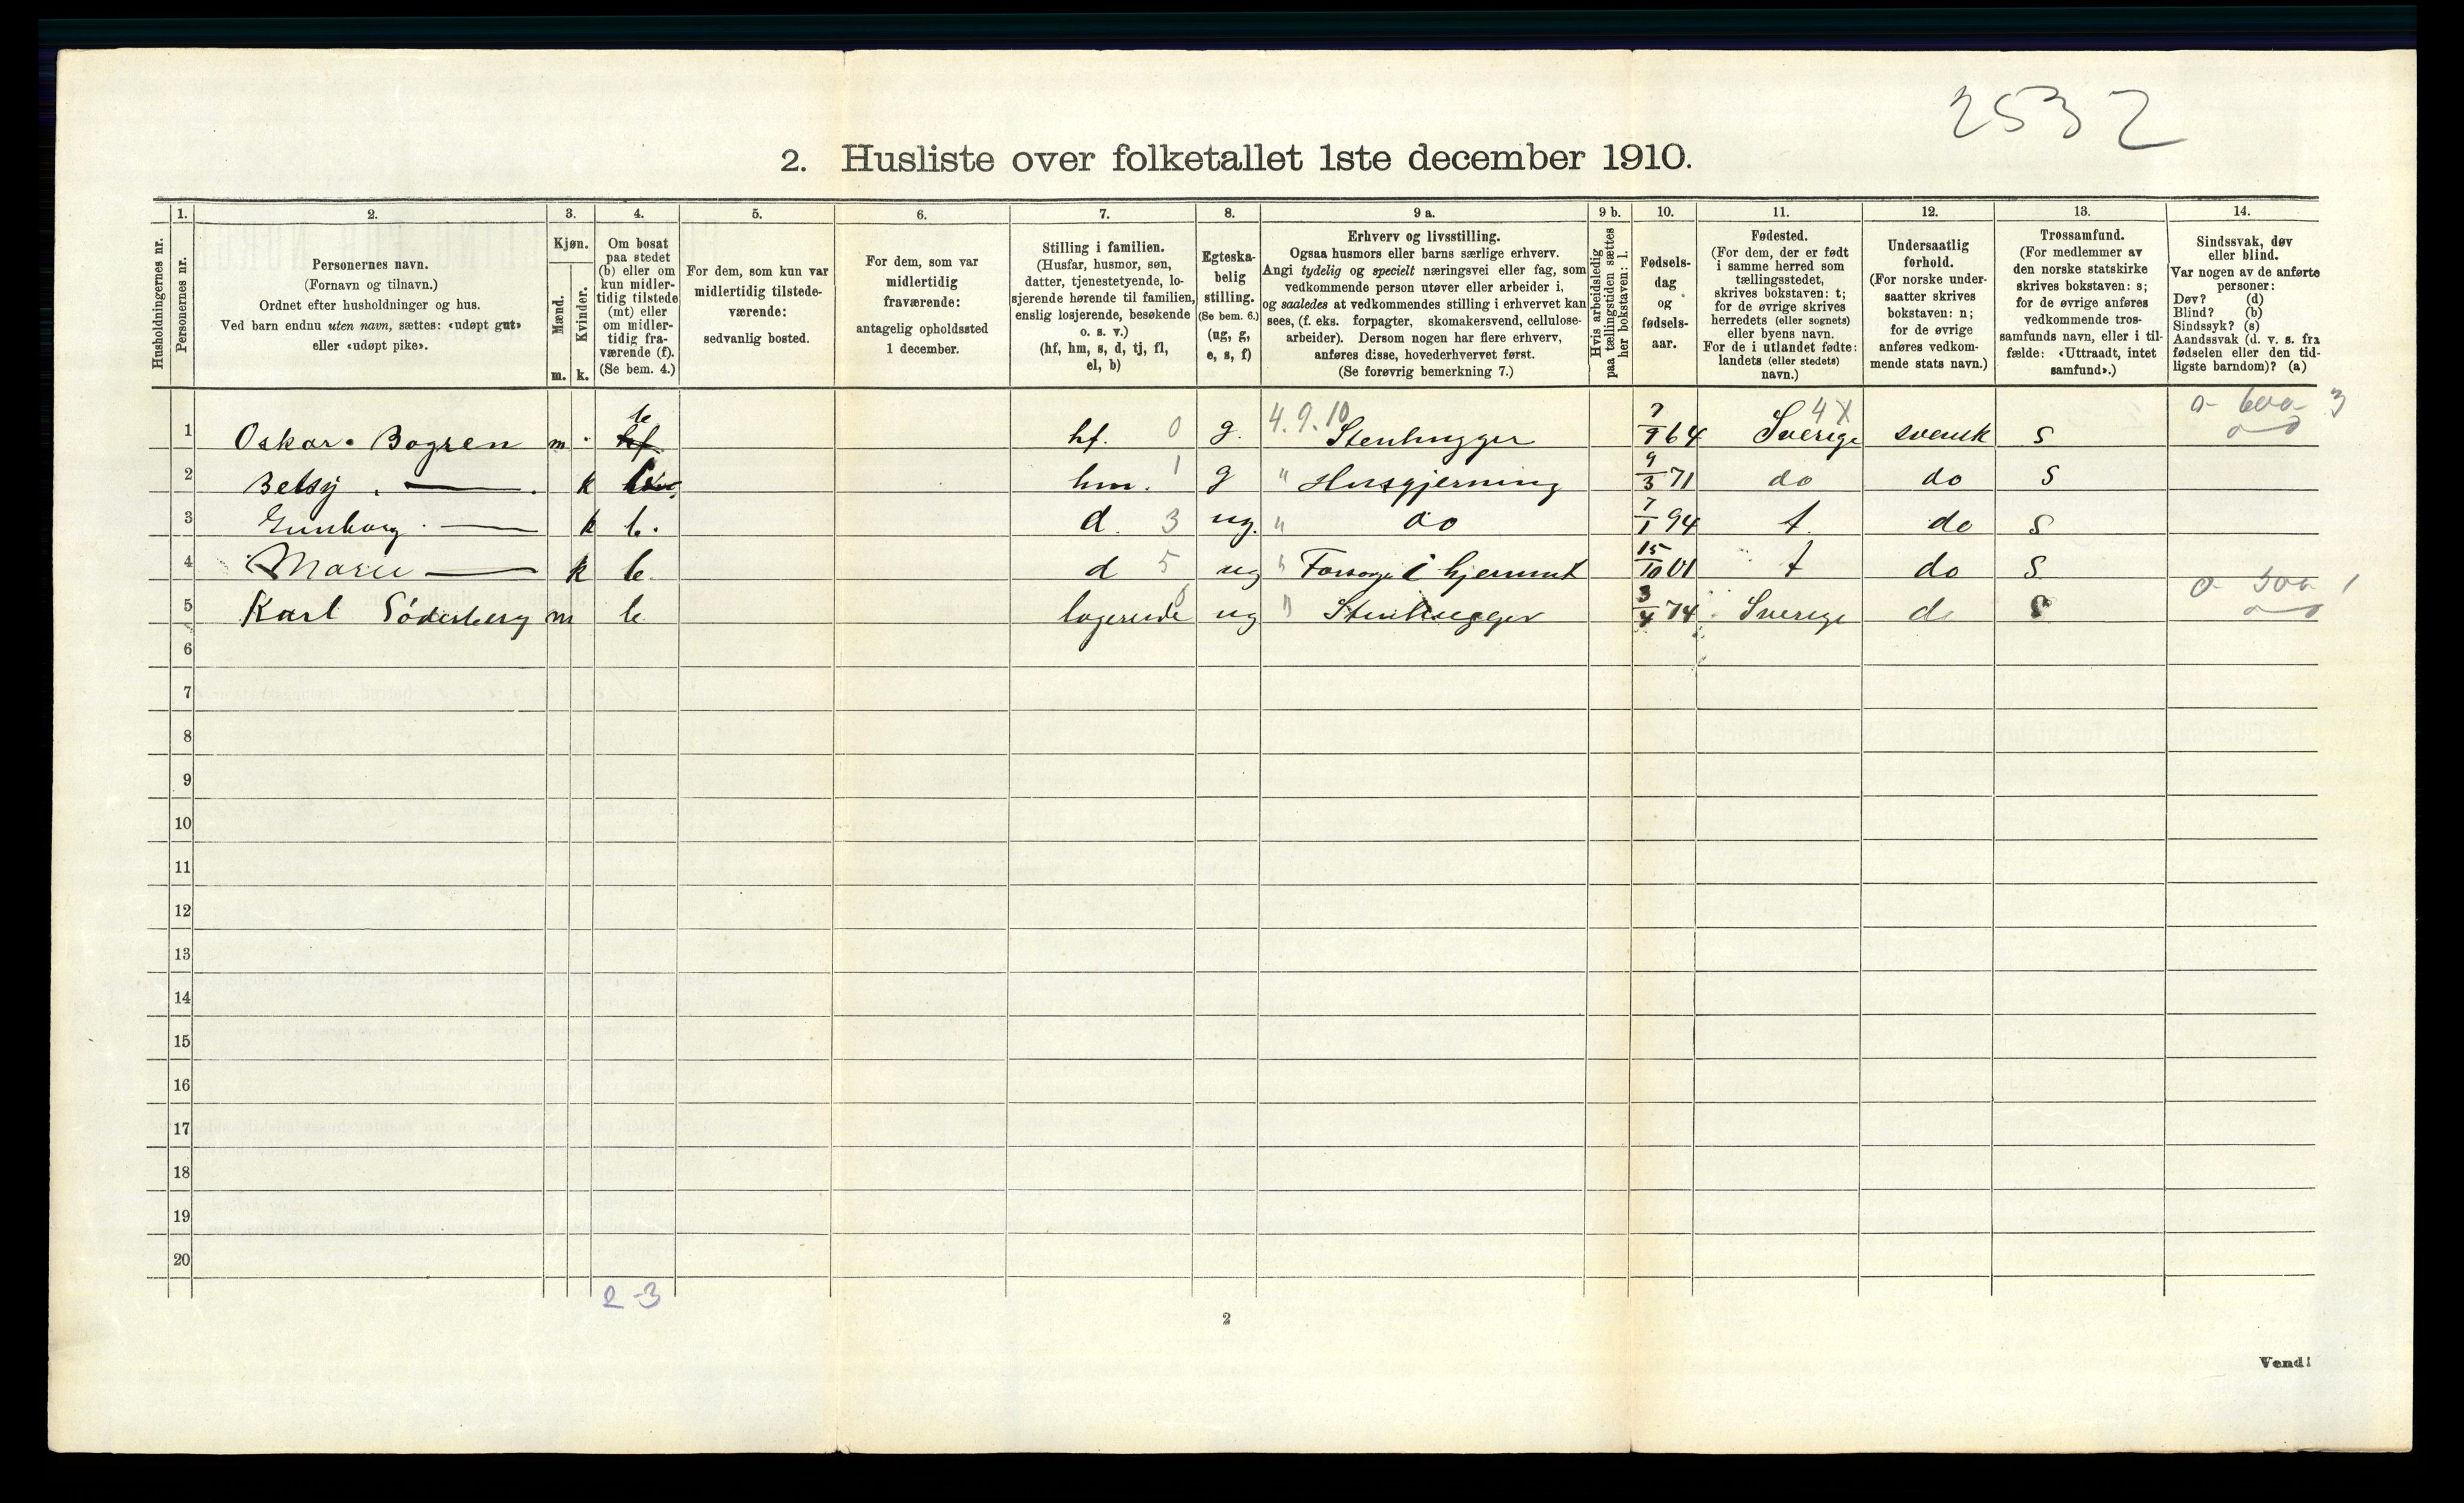 2532
2. Husliste over folketallet 1ste december 1910.
Husholdningernes nr.
1.
Personernes nr.
2.
Personernes navn.
(Fornavn og tilnavn.)
Ordnet efter husholdninger og hus.
Ved barn endnu uten navn, sættes: «udøpt gut»
eller «udøpt pike».
3.
Kjøn.
Mænd.
Kvinder.
m. k.
4.
Om bosat
paa stedet
(b) eller om
kun midler-
tidig tilstede
(mt) eller
om midler-
tidig fra-
værende (f).
(Se bem. 4.)
5.
For dem, som kun var
midlertidig tilstede-
værende:
sedvanlig bosted.
6.
For dem, som var
midlertidig
fraværende:
antagelig opholdssted
1 december.
7.
Stilling i familien.
(Husfar, husmor, søn,
datter, tjenestetyende, lo-
sjerende hørende til familien,
enslig losjerende, besøkende
o. s. v.)
(hf, hm, s, d, tj, fl,
el, b)
8.
Egteska-
belig
stilling.
(Se bem. 6.)
(ug, g,
e, s, f)
9 a.
Erhverv og livsstilling.
Ogsaa husmors eller barns særlige erhverv.
Angi tydelig og specielt næringsvei eller fag, som
vedkommende person utøver eller arbeider i,
og saaledes at vedkommendes stilling i erhvervet kan
sees, (f. eks. forpagter, skomakersvend, cellulose-
arbeider). Dersom nogen har flere erhverv,
anføres disse, hovederhvervet først.
(Se forøvrig bemerkning 7.)
9 b.
Hvis arbeidsledig
paa tællingstiden sættes
her bokstaven: l.
10.
Fødsels-
dag
og
fødsels-
aar.
11.
Fødested.
(For dem, der er født
i samme herred som
tællingsstedet,
skrives bokstaven: t;
for de øvrige skrives
herredets (eller sognets)
eller byens navn.
For de i utlandet fødte:
landets (eller stedets)
navn.)
12.
Undersaatlig
forhold.
(For norske under-
saatter skrives
bokstaven: n;
for de øvrige
anføres vedkom-
mende stats navn.)
13.
Trossamfund.
(For medlemmer av
den norske statskirke
skrives bokstaven: s;
for de øvrige anføres
vedkommende tros-
samfunds navn, eller i til-
fælde: «Uttraadt, intet
samfund».)
14.
Sindssvak, døv
eller blind.
Var nogen av de anførte
personer:
Døv? (d)
Blind? (b)
Sindssyk? (s)
Aandssvak (d. v. s. fra
fødselen eller den tid-
ligste barndom)? (a)
1 Oskar Bogren m b hf. 0 g. 4.9.10 Stenhugger 7/9 64 Sverige 4X svensk s 0-600- 3
2 Betsy — k b hm. 1 g " Husgjerning 9/3 71 do do s
3 Gunborg — k b. d. 3 ug. " do 7/1 94 t. do s
4 Marie — k b. d 5 ug " Forsørges i hjemmet 15/10 01 t do s
5 Karl Söderberg m b. logerende ug " Stenhugger 3/4 74 Sverige do s 0-500- 1
6
7
8
9
10
11
12
13
14
15
16
17
18
19
20
2-3
2
Vend!